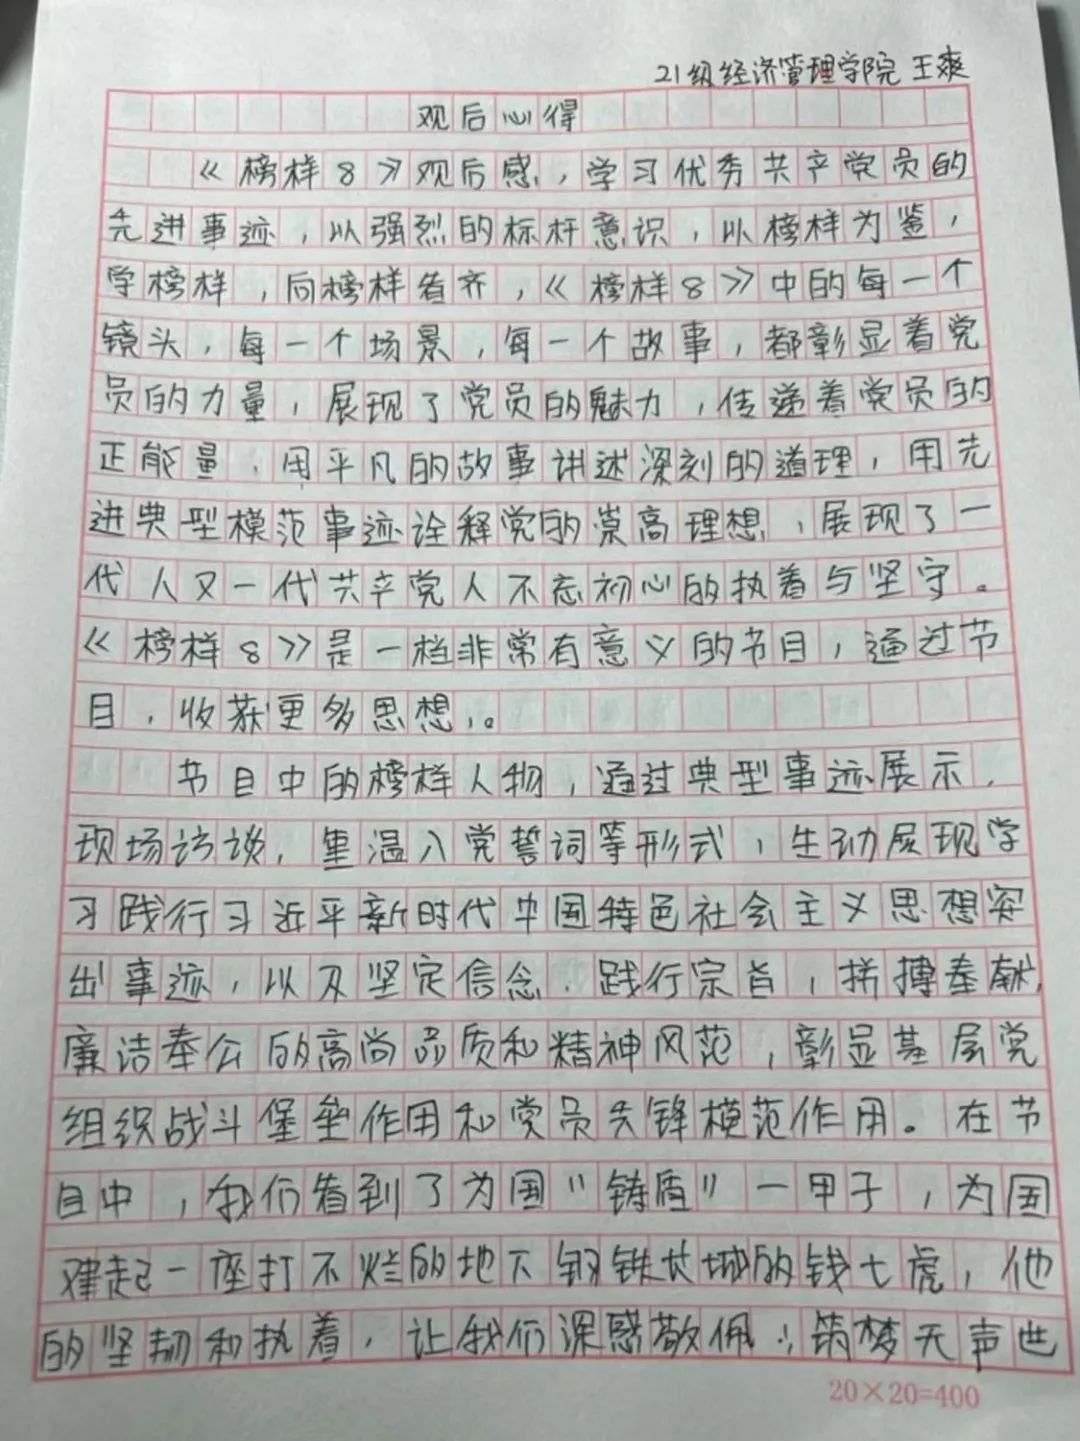 21级经济管理学院 王爽
观后心得
《榜样8》观后感，学习优秀共产党员的
先进事迹，以强烈的标杆意识，以榜样为鉴，
学榜样，向榜样看齐，《榜样8》中的每一个
镜头，每一个场景，每一个故事，都彰显着党
员的力量，展现了党员的魅力，传递着党员的
正能量，用平凡的故事讲述深刻的道理，用先
进典型模范事迹诠释党的崇高理想，展现了一
代人又一代共产党人不忘初心的执着与坚守。
《榜样8》是一档非常有意义的节目，通过节
目，收获更多思想，。
节目中的榜样人物，通过典型事迹展示、
现场访谈，重温入党誓词等形式，生动展现学
习践行习近平新时代中国特色社会主义思想突
出事迹，以及坚定信念、践行宗旨，拼搏奉献，
廉洁奉公的高尚品质和精神风范，彰显基层党
组织战斗堡垒作用和党员先锋模范作用。在节
目中，我们看到了为国“铸盾”一甲子，为国
建起一座打不烂的地下钢铁长城的钱七虎，他
的坚韧和执着，让我们深感敬佩，；筑梦无声世
20×20=400